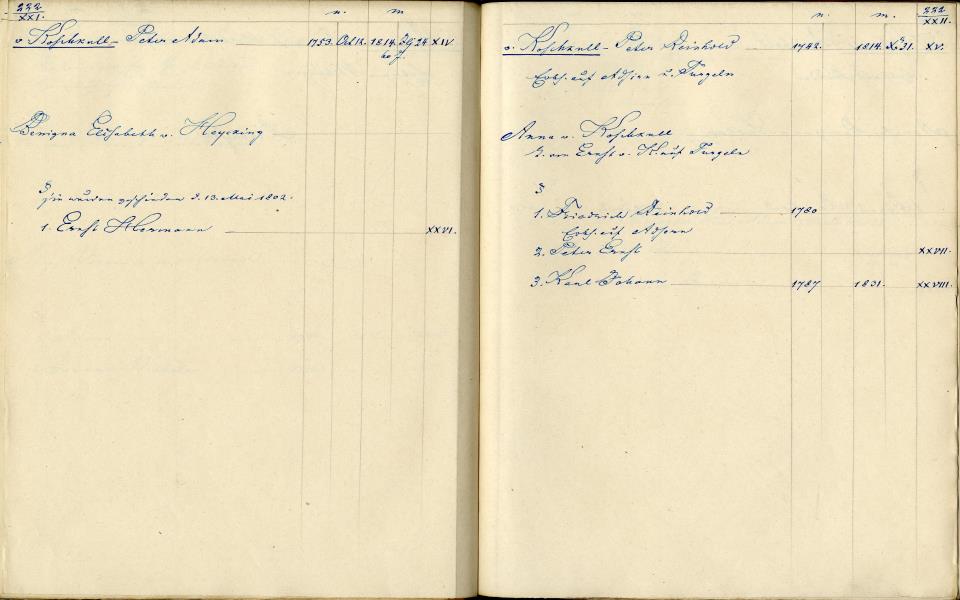 222
XXI.
n. m
v. Koschkull - Peter Adam 1753. Oct 12. 1814. 24 XIV
60 J.
Benigna Elisabeth v. Heycking
Sie wurden geschieden d. 13. Mai 1802.
1. Ernst Hermann XXVI.
222
XXII.
n. m.
v. Koschkull - Peter Reinhold 1742. 1814. 31. XV.
Erbh. auf Adsirn u. Turgeln
Anna v. Koschkull
T. von Ernst v. K. auf Turgeln
1. Friedrich Reinhold 1780
Erbh. auf Adsirn
2. Peter Ernst XXVII.
3. Karl Johann 1787 1831. XXVIII.